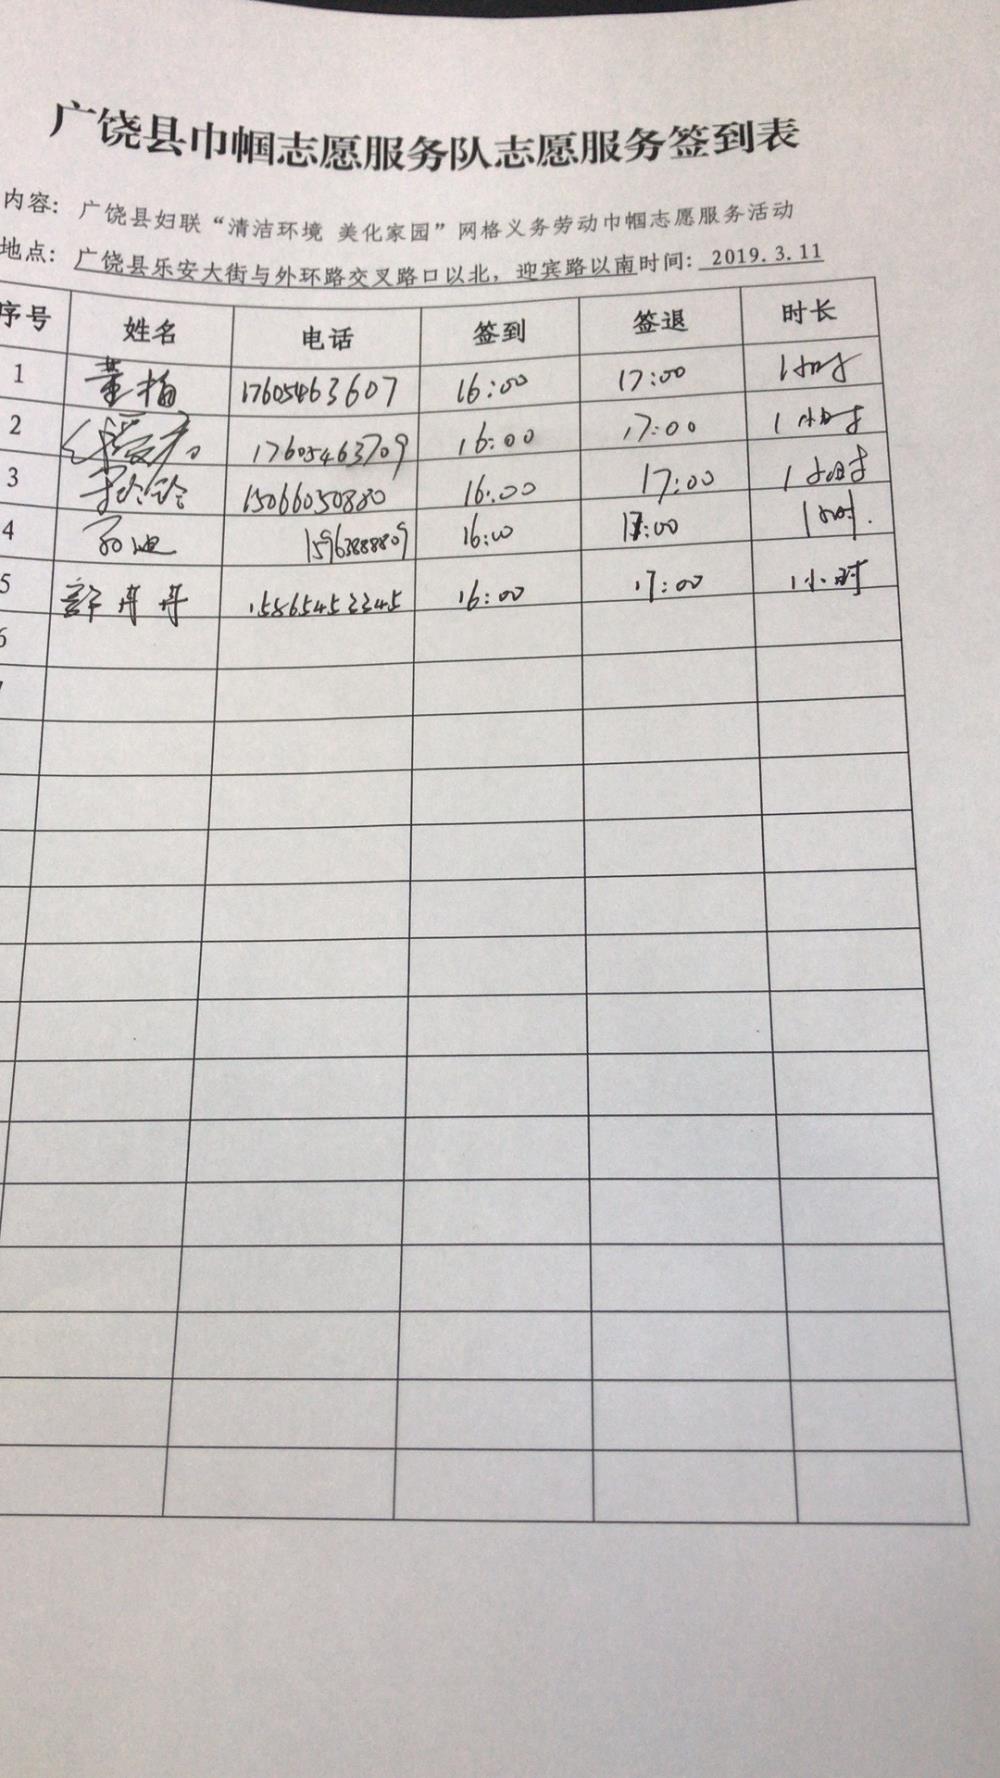 广饶县巾帼志愿服务队志愿服务签到表
内容: 广饶县妇联“清洁环境 美化家园”网格义务劳动巾帼志愿服务活动
地点: 广饶县乐安大街与外环路交叉路口以北，迎宾路以南时间: 2019.3.11
序号 姓名 电话 签到 签退 时长
1 董梅 17605463607 16:00 17:00 1小时
2 17605463709 16:00 17:00 1小时
3 15066050880 16:00 17:00 1小时
4 15963888809 16:00 17:00 1小时.
5 许丹丹 15865452345 16:00 17:00 1小时
6
7